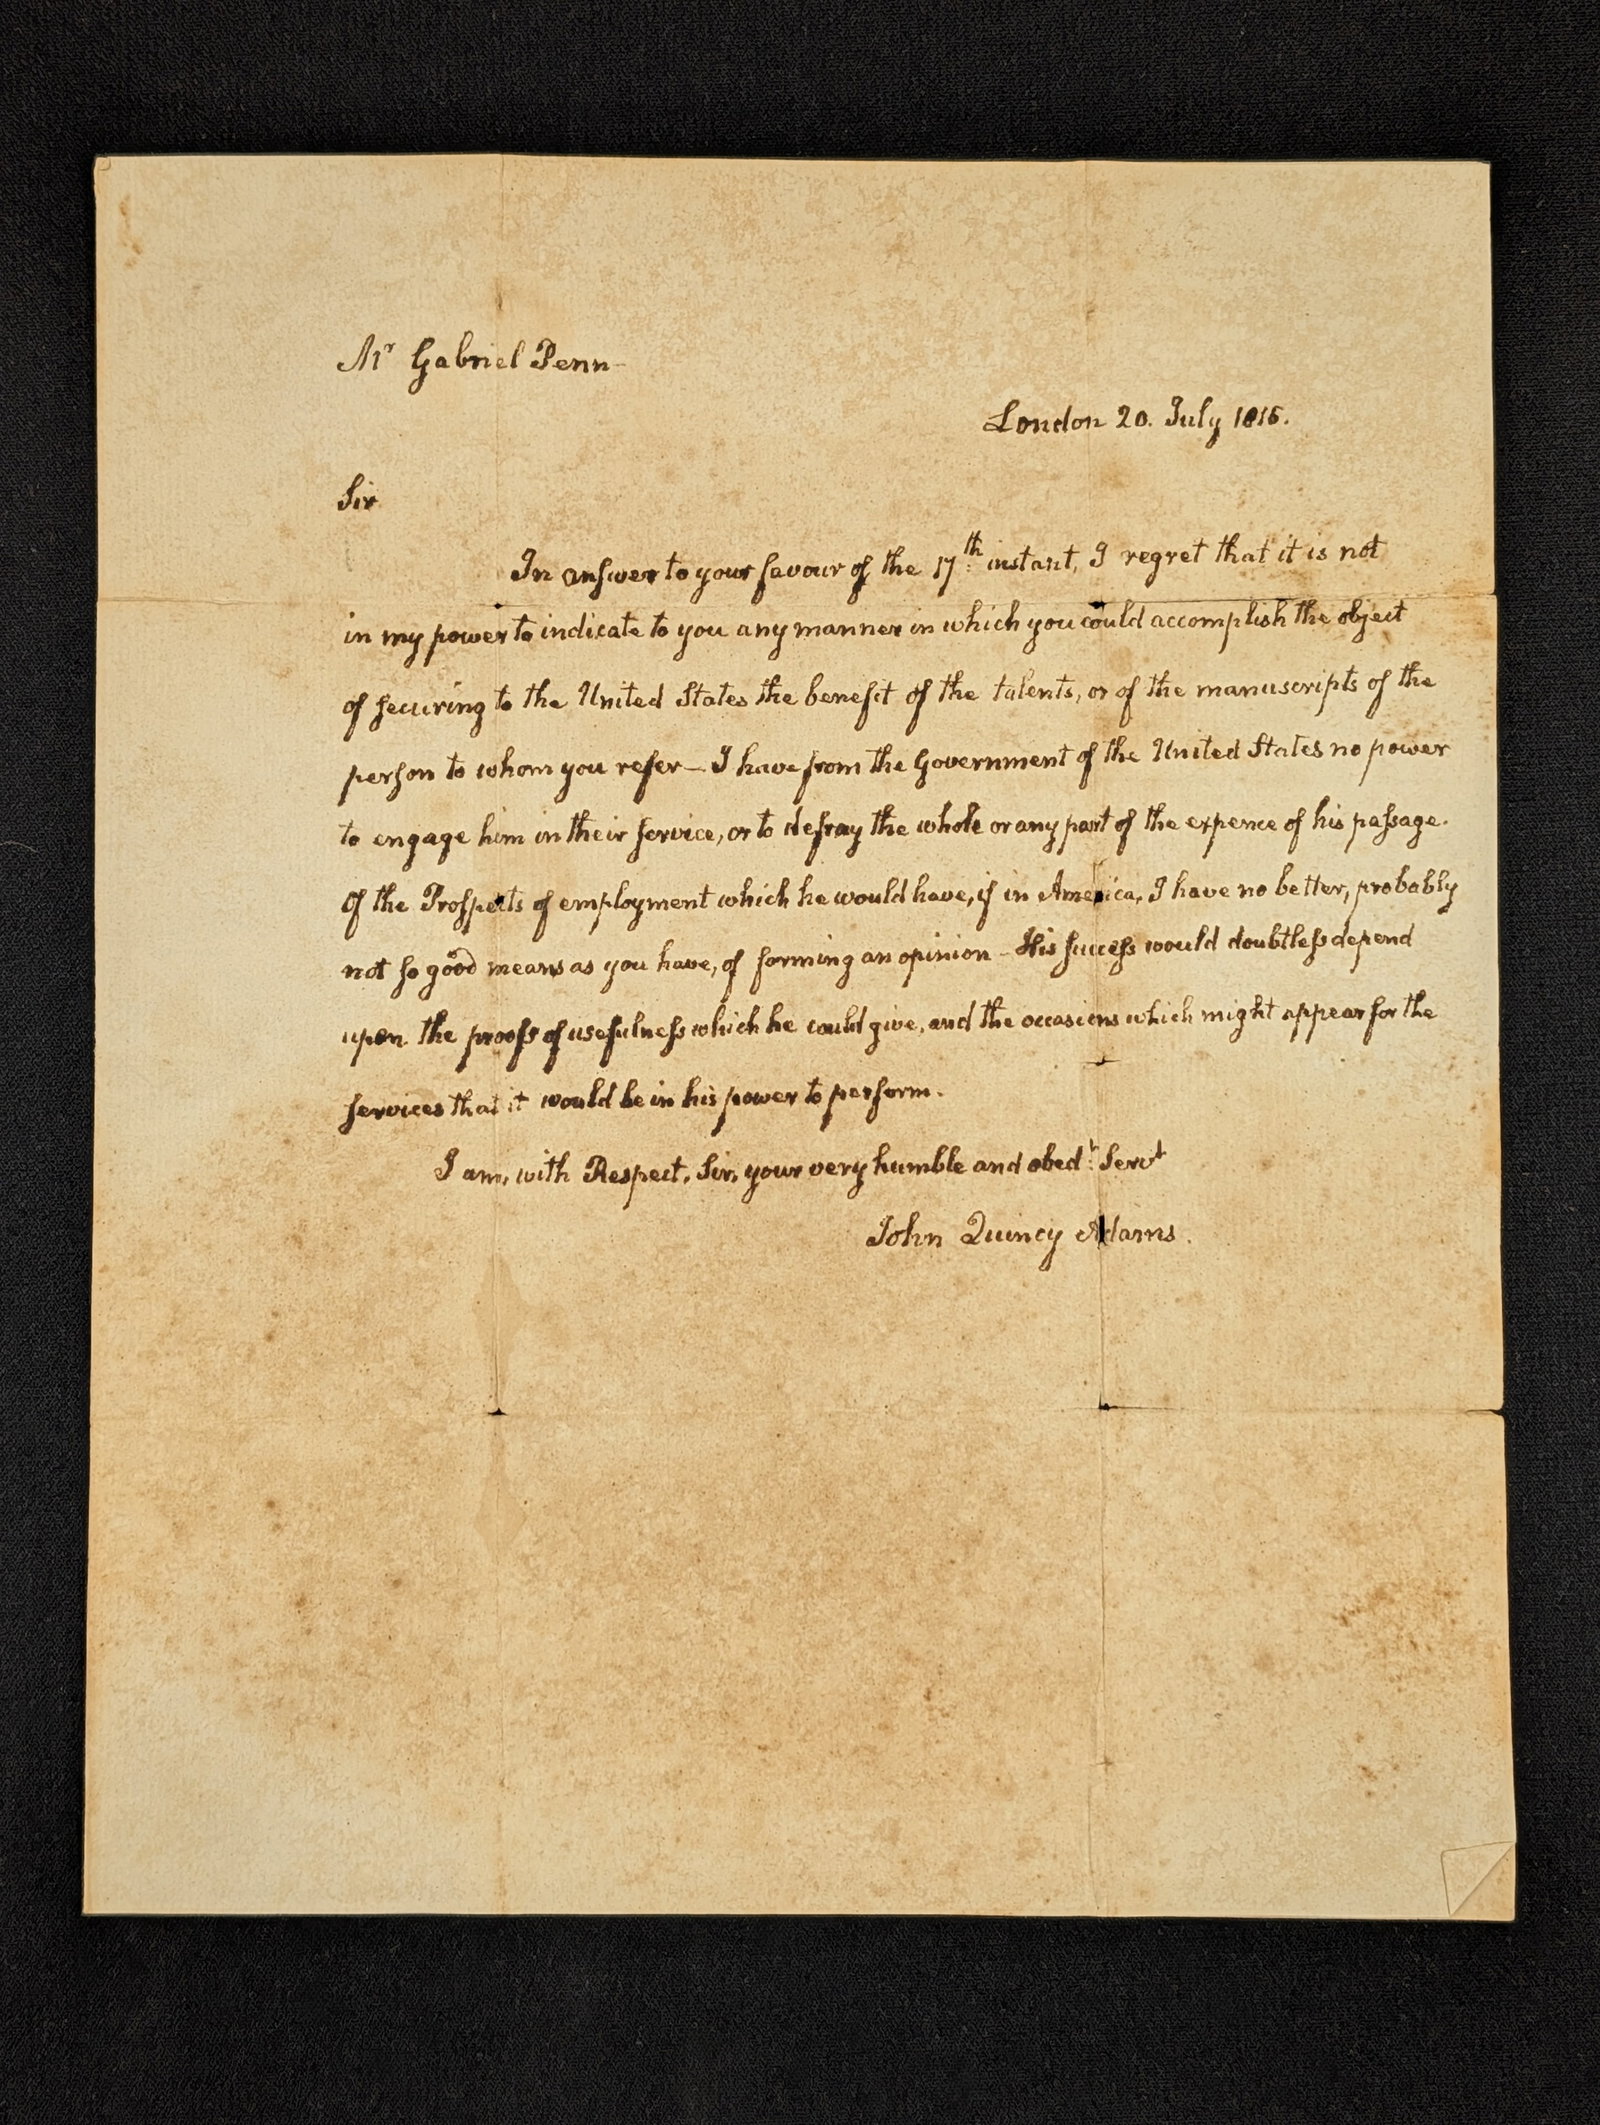 Mr Gabriel Penn
London 20. July 1815.
Sir
In answer to your favour of the 17th instant, I regret that it is not
in my power to indicate to you any manner in which you could accomplish the object
of securing to the United States the benefit of the talents, or of the manuscripts of the
person to whom you refer — I have from the Government of the United States no power
to engage him in their service, or to defray the whole or any part of the expence of his passage.
Of the Prospects of employment which he would have, if in America, I have no better, probably
not so good means as you have, of forming an opinion — His success would doubtless depend
upon the proofs of usefulness which he could give, and the occasions which might appear for the
services that it would be in his power to perform.
I am, with Respect, Sir, your very humble and obedt. Servt
John Quincy Adams.